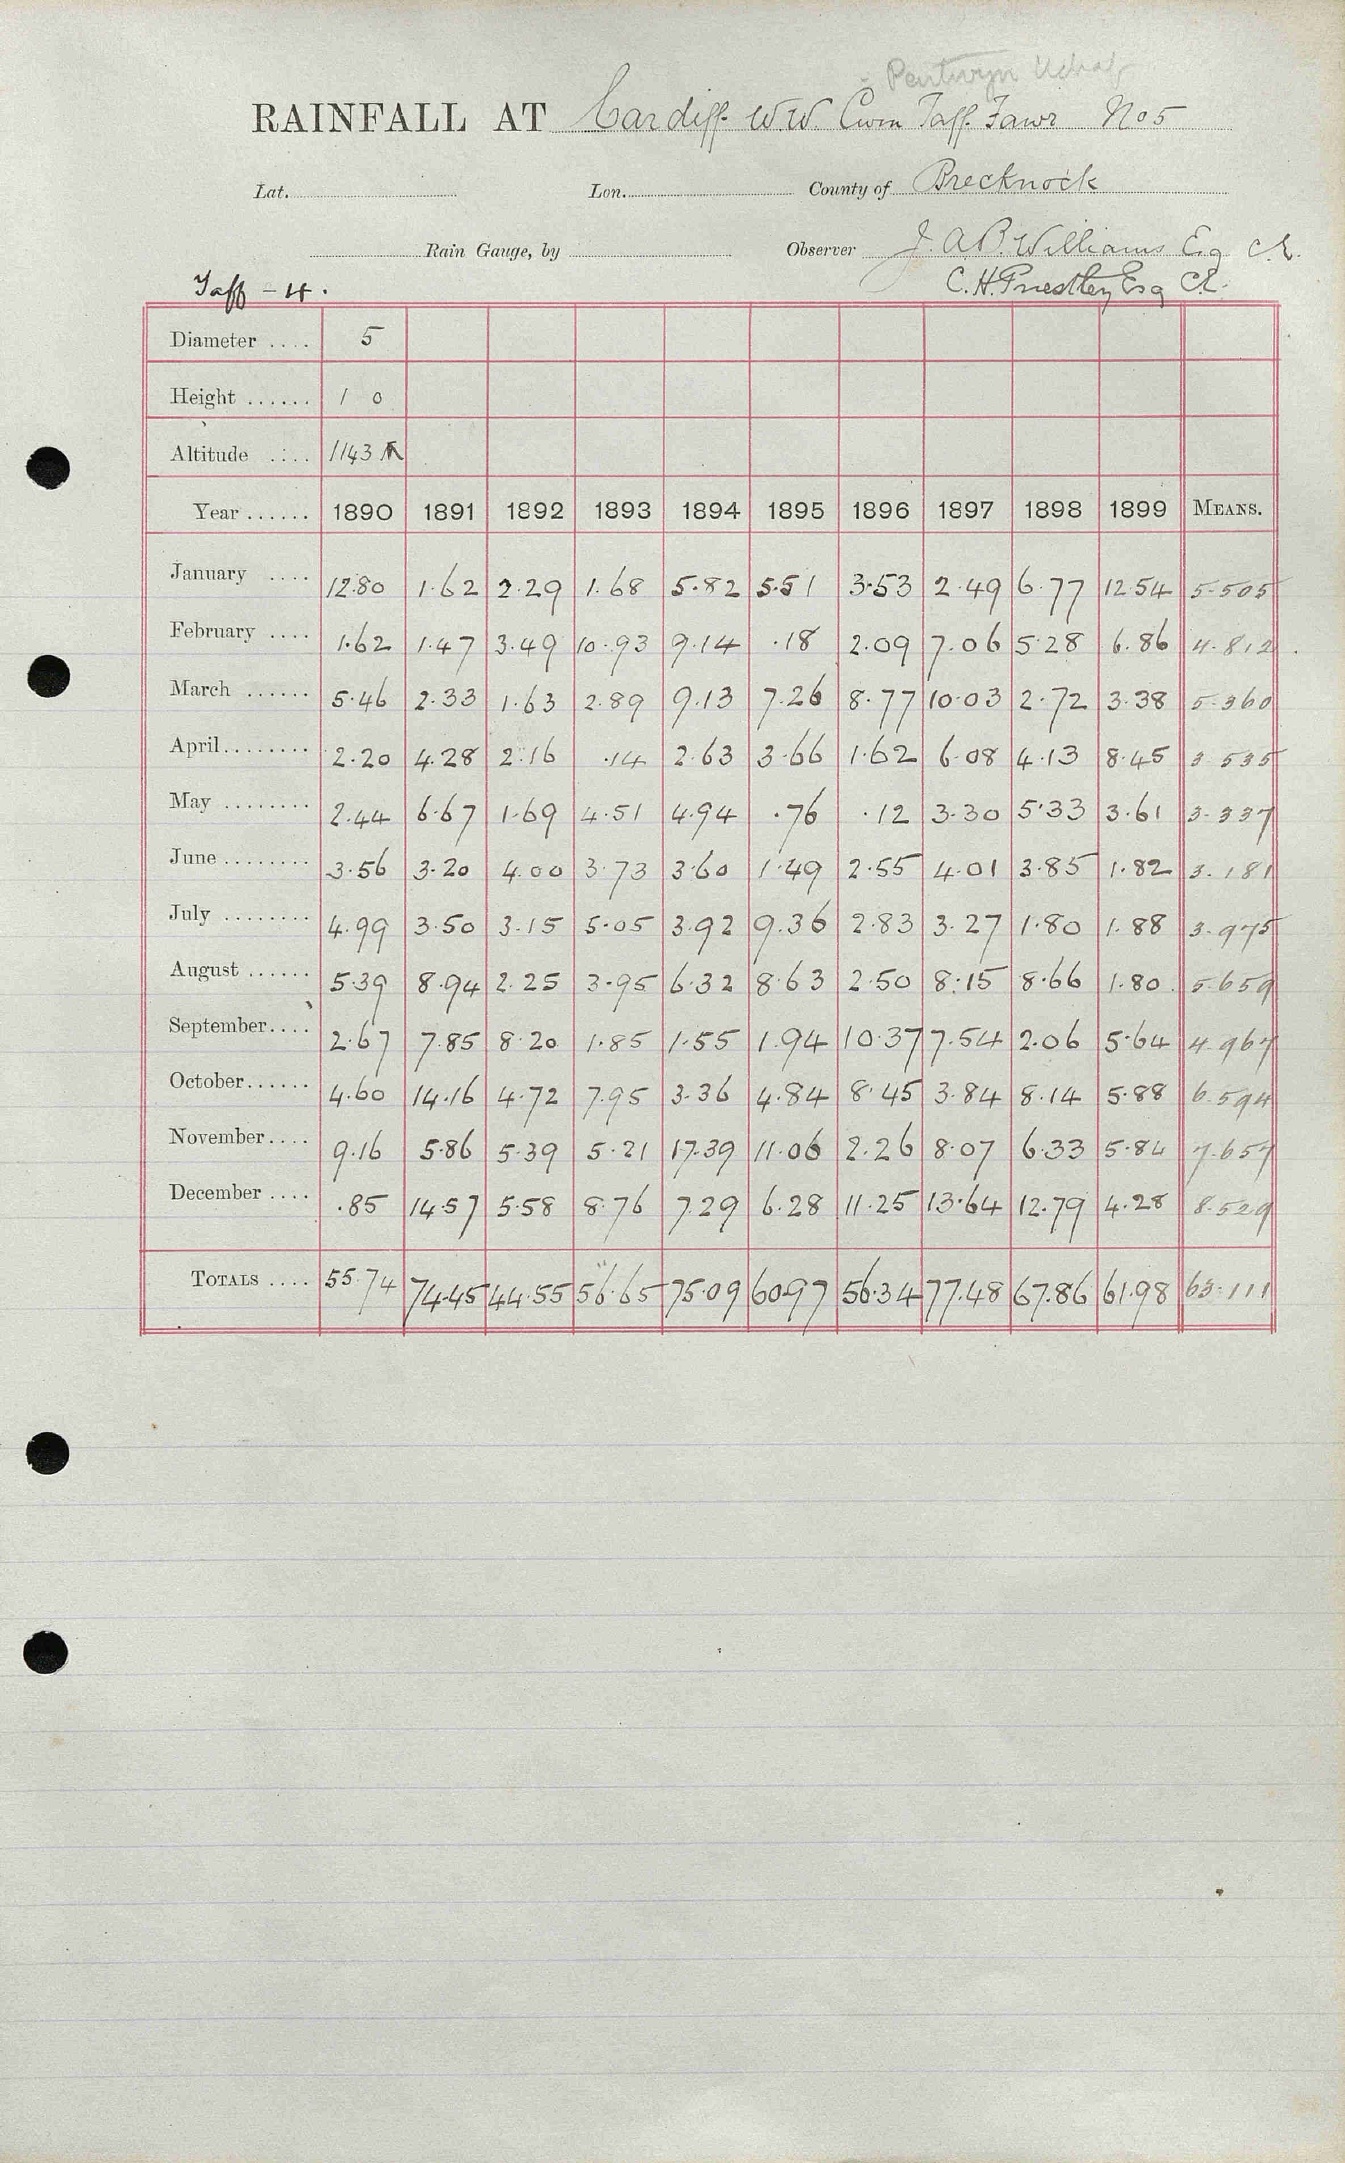 Pentwyn Uchaf
RAINFALL AT Cardiff W.W. Cwm Taff Fawr No 5
Lat. Lon. County of Brecknock
Rain Gauge, by Observer J. A. B. Williams Esq C.E.
Taff - 4. C. H. Priestley Esq CE.
Diameter .... 5
Height ...... 1 0
Altitude .... 1143 ft
Year ...... 1890 1891 1892 1893 1894 1895 1896 1897 1898 1899 MEANS.
January .... 12.80 1.62 2.29 1.68 5.82 5.51 3.53 2.49 6.77 12.54 5.505
February .... 1.62 1.47 3.49 10.93 9.14 .18 2.09 7.06 5.28 6.86 4.812
March ...... 5.46 2.33 1.63 2.89 9.13 7.26 8.77 10.03 2.72 3.38 5.360
April ........ 2.20 4.28 2.16 .14 2.63 3.66 1.62 6.08 4.13 8.45 3.535
May ........ 2.44 6.67 1.69 4.51 4.94 .76 .12 3.30 5.33 3.61 3.337
June ........ 3.56 3.20 4.00 3.73 3.60 1.49 2.55 4.01 3.85 1.82 3.181
July ........ 4.99 3.50 3.15 5.05 3.92 9.36 2.83 3.27 1.80 1.88 3.975
August ...... 5.39 8.94 2.25 3.95 6.32 8.63 2.50 8.15 8.66 1.80 5.659
September .... 2.67 7.85 8.20 1.85 1.55 1.94 10.37 7.54 2.06 5.64 4.967
October ...... 4.60 14.16 4.72 7.95 3.36 4.84 8.45 3.84 8.14 5.88 6.594
November .... 9.16 5.86 5.39 5.21 17.39 11.06 2.26 8.07 6.33 5.84 7.657
December .... .85 14.57 5.58 8.76 7.29 6.28 11.25 13.64 12.79 4.28 8.529
TOTALS .... 55.74 74.45 44.55 56.65 75.09 60.97 56.34 77.48 67.86 61.98 63.111